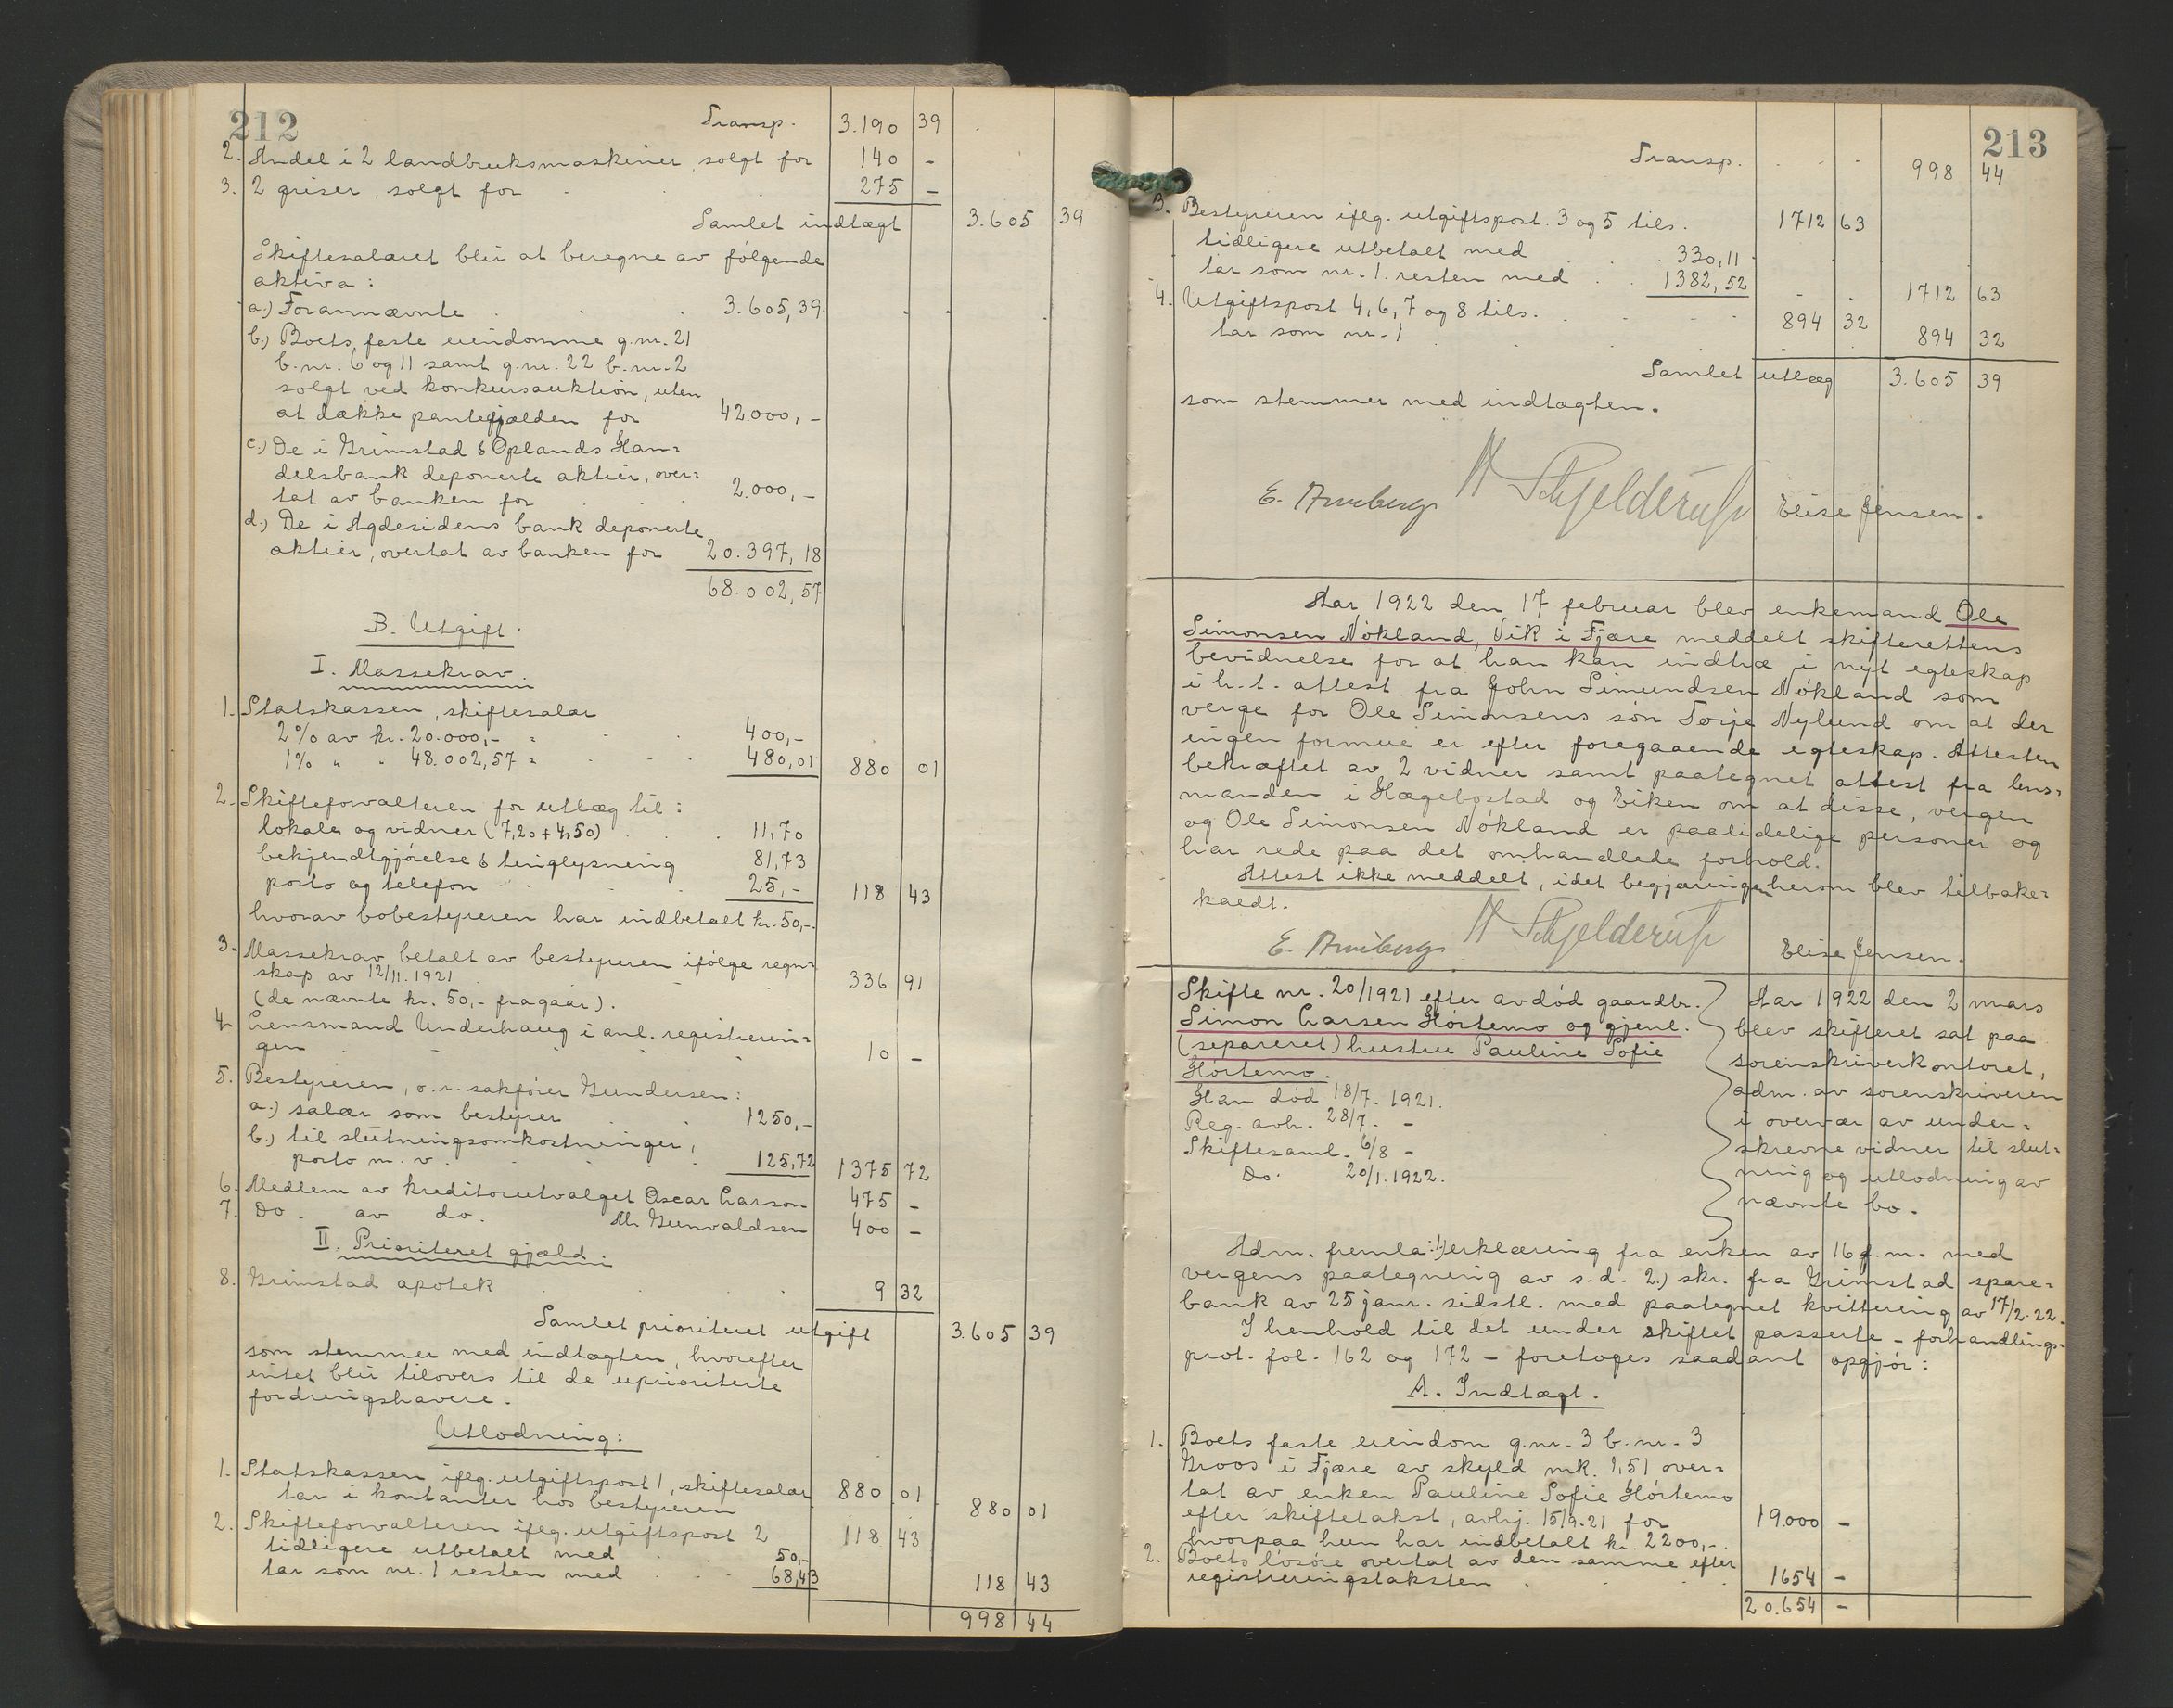 212
Transp. 3.190 39
2. Andel i 2 landbruksmaskiner, solgt for 140 -
3. 2 griser, solgt for 275 -
Samlet indtægt 3.605 39
Skiftesalæret blir at beregne av følgende
aktiva:
a.) Forannævnte 3.605,39
b.) Boets faste eiendomme g.nr. 21
b.nr. 6 og 11 samt g.nr. 22 b.nr. 2
solgt ved konkursauktion, uten
at dække pantegjælden for 42.000,-
c.) De i Grimstad & Oplands Han-
delsbank deponerte aktier, over-
tat av banken for 2.000,-
d.) De i Agdesidens bank deponerte
aktier, overtat av banken for 20.397,18
68.002,57
B. Utgift.
I. Massekrav.
1. Statskassen, skiftesalær
2% av kr. 20.000,- = 400,-
1% " " 48.002,57 = 480,01 880 01
2. Skifteforvalteren for utlæg til:
lokale og vidner (7,20 + 4,50) 11,70
bekjendtgjørelse & tinglysning 81,73
porto og telefon 25,- 118 43
hvorav bobestyreren har indbetalt kr. 50,-.
3. Massekrav betalt av bestyreren ifølge regn-
skap av 12/11. 1921 336 91
(de nævnte kr. 50,- fragaar).
4. Lensmand Underhaug i anl. registrerin-
gen 10 -
5. Bestyreren, o.r. sakfører Gundersen:
a.) salær som bestyrer 1250,-
b.) til slutningsomkostninger,
porto m. v. 125,72 1375 72
6. Medlem av kreditorutvalget Oscar Larson 475 -
7. Do. av do. M. Gunvaldsen 400 -
II. Prioriteret gjæld.
8. Grimstad apotek 9 32
Samlet prioriteret utgift 3.605 39
som stemmer med indtægten, hvorefter
intet blir tilovers til de uprioriterte
fordringshavere.
Utlodning:
1. Statskassen ifлg. utgiftspost 1, skiftesalær 880 01
tar i kontanter hos bestyreren 880 01
2. Skifteforvalteren iflg. utgiftspost 2 118 43
tidligere utbetalt med 50,-
tar som nr. 1 resten med 68,43 118 43
998 44
213
Transp. 998 44
3. Bestyreren iflg. utgiftspost 3 og 5 tils. 1712 63
tidligere utbetalt med 330,11
tar som nr. 1 resten med 1382,52 1712 63
4. Utgiftspost 4, 6, 7 og 8 tils. 894 32
tar som nr. 1 894 32
Samlet utlæg 3.605 39
som stemmer med indtægten.
E. Arneberg H Schjelderup Elise Jensen.
Aar 1922 den 17 februar blev enkemand Ole
Simonsen Nökland, Vik i Fjære meddelt skifterettens
bevidnelse for at han kan indtræ i nyt egteskap
i h.t. attest fra John Simundsen Nökland som
verge for Ole Simonsens søn Torje Nylund om at der
ingen formue er efter foregaaende egteskap. Attesten
bekræftet av 2 vidner samt paategnet attest fra lens-
manden i Hægebostad og Eiken om at disse, vergen
og Ole Simonsen Nökland er paalidelige personer og
har rede paa det omhandlede forhold.
Attest ikke meddelt, idet begjæringen herom blev tilbake-
kaldt.
E. Arneberg H Schjelderup Elise Jensen.
Skifte nr. 20/1921 efter avdød gaardbr.
Simon Larsen Hörtemo og gjenl.
(separeret) hustru Pauline Sofie
Hörtemo.
Han död 18/7. 1921.
Reg. avh. 28/7. -
Skiftesaml. 6/8 -
Do. 20/1. 1922.
Aar 1922 den 2 mars
blev skifteret sat paa
sorenskriverkontoret,
adm. av sorenskriveren
i overvær av under-
skrevne vidner til slut-
ning og utlodning av
nævnte bo.
Adm. fremla: 1) erklæring fra enken av 16 f.m. med
vergens paategning av s.d. 2.) skr. fra Grimstad spare-
bank av 25 janr. sidstl. med paategnet kvittering av 17/2.22.
I henhold til det under skiftet passerte - forhandlings-
prot. fol. 162 og 172 - foretoges saadant opgjör:
A. Indtægt.
1. Boets faste eiendom g.nr. 3 b.nr. 3
Groos i Fjære av skyld mk. 1,51 over-
tat av enken Pauline Sofie Hörtemo
efter skiftetakst, avhj. 15/9-21 for 19.000 -
hvorpaa hun har indbetalt kr. 2200,-.
2. Boets lösöre overtat av den samme efter
registreringstaksten 1654 -
20.654 -